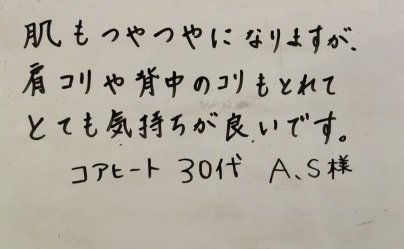 肌もつやつやになりますが、
肩コリや背中のコリもとれて
とても気持ちが良いです。
コアヒート 30代 A、S様